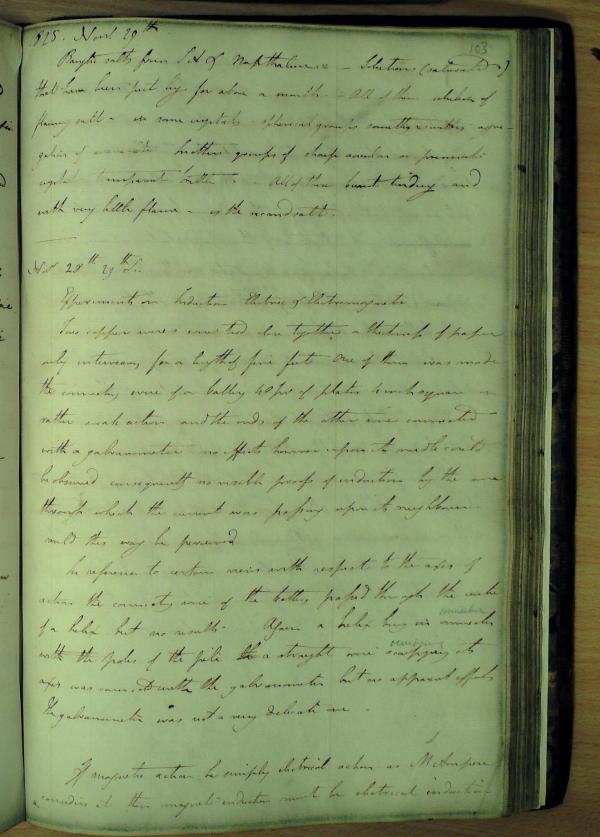 1825. Novr 29th
103
Barytic salts from S A & Napthaline — Solutions (saturated)
that have been put by for above a month — All of them
flaming salt — in some crystals — spherical groups some
brittle groups of sharp acicular or prismatic
crystals transparent brittle — All of these burnt tindery and
with very little flame — is the second salt.
Nov 28th 29th
Experiments on Induction Electric & Electromagnetic
Two copper wires were tied close together a thickness of paper
only intervening for a length of five feet. One of them was made
the connecting wire of a battery 40 pr of plates 4 inches square in
rather weak action and the ends of the other were connected
with a galvanometer no effects however upon its needle could
be observed consequently no visible proofs of induction by the wire
through which the current was passing upon its neighbour
could this way be perceived
In reference to certain views with respect to the axes of
action the connecting wire of the battery passed through the centre
of a helix but no results. Again a helix being in connection
connection
with the poles of the pile a straight wire occupying its
occupying
axis was connected with the galvanometer but no apparent effects
The galvanometer was not a very delicate one.
If magnetic action be simply electrical action as M Ampere
considers it then magnetic induction must be electrical induction